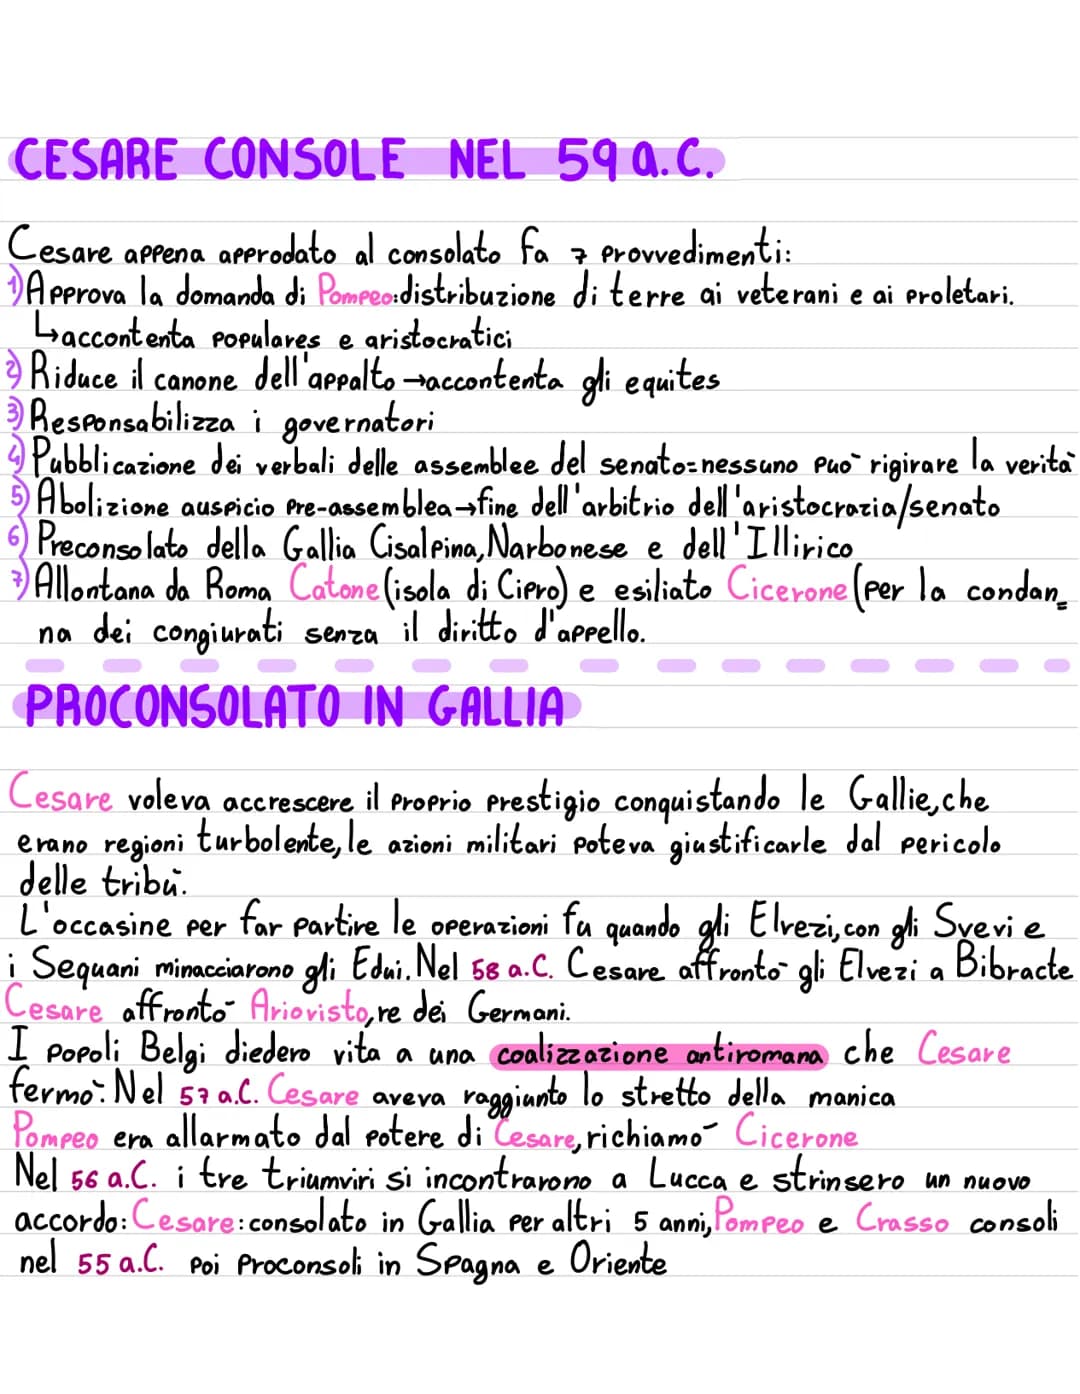 CESARE CONSOLE NEL 59 a.C.
Cesare appena approdato al consolato fa 7 provvedimenti:
1) Approva la domanda di Pompeo: distribuzione di terre ai veterani e ai proletari.
↳accontenta populares e aristocratici
2) Riduce il canone dell'appalto →accontenta gli equites
3) Responsabilizza i governatori
4) Pubblicazione dei verbali delle assemblee del senato=nessuno può rigirare la verità
5) Abolizione auspicio pre-assemblea→fine dell'arbitrio dell'aristocrazia/senato
6) Preconsolato della Gallia Cisalpina, Narbonese e dell'Illirico
7) Allontana da Roma Catone (isola di Cipro) e esiliato Cicerone (per la condan=
na dei congiurati senza il diritto d'appello.
PROCONSOLATO IN GALLIA
Cesare voleva accrescere il proprio prestigio conquistando le Gallie, che
erano regioni turbolente, le azioni militari poteva giustificarle dal pericolo
delle tribù.
L'occasine per far partire le operazioni fu quando gli Elvezi, con gli Svevi e
i Sequani minacciarono gli Edui. Nel 58 a.C. Cesare affrontò gli Elvezi a Bibracte
Cesare affrontò Ariovisto, re dei Germani.
I popoli Belgi diedero vita a una coalizzazione antiromana che Cesare
fermò. Nel 57 a.C. Cesare aveva raggiunto lo stretto della manica
Pompeo era allarmato dal potere di Cesare, richiamò Cicerone
Nel 56 a.C. i tre triumviri si incontrarono a Lucca e strinsero un nuovo
accordo: Cesare: consolato in Gallia per altri 5 anni, Pompeo e Crasso consoli
nel 55 a.C. poi proconsoli in Spagna e Oriente